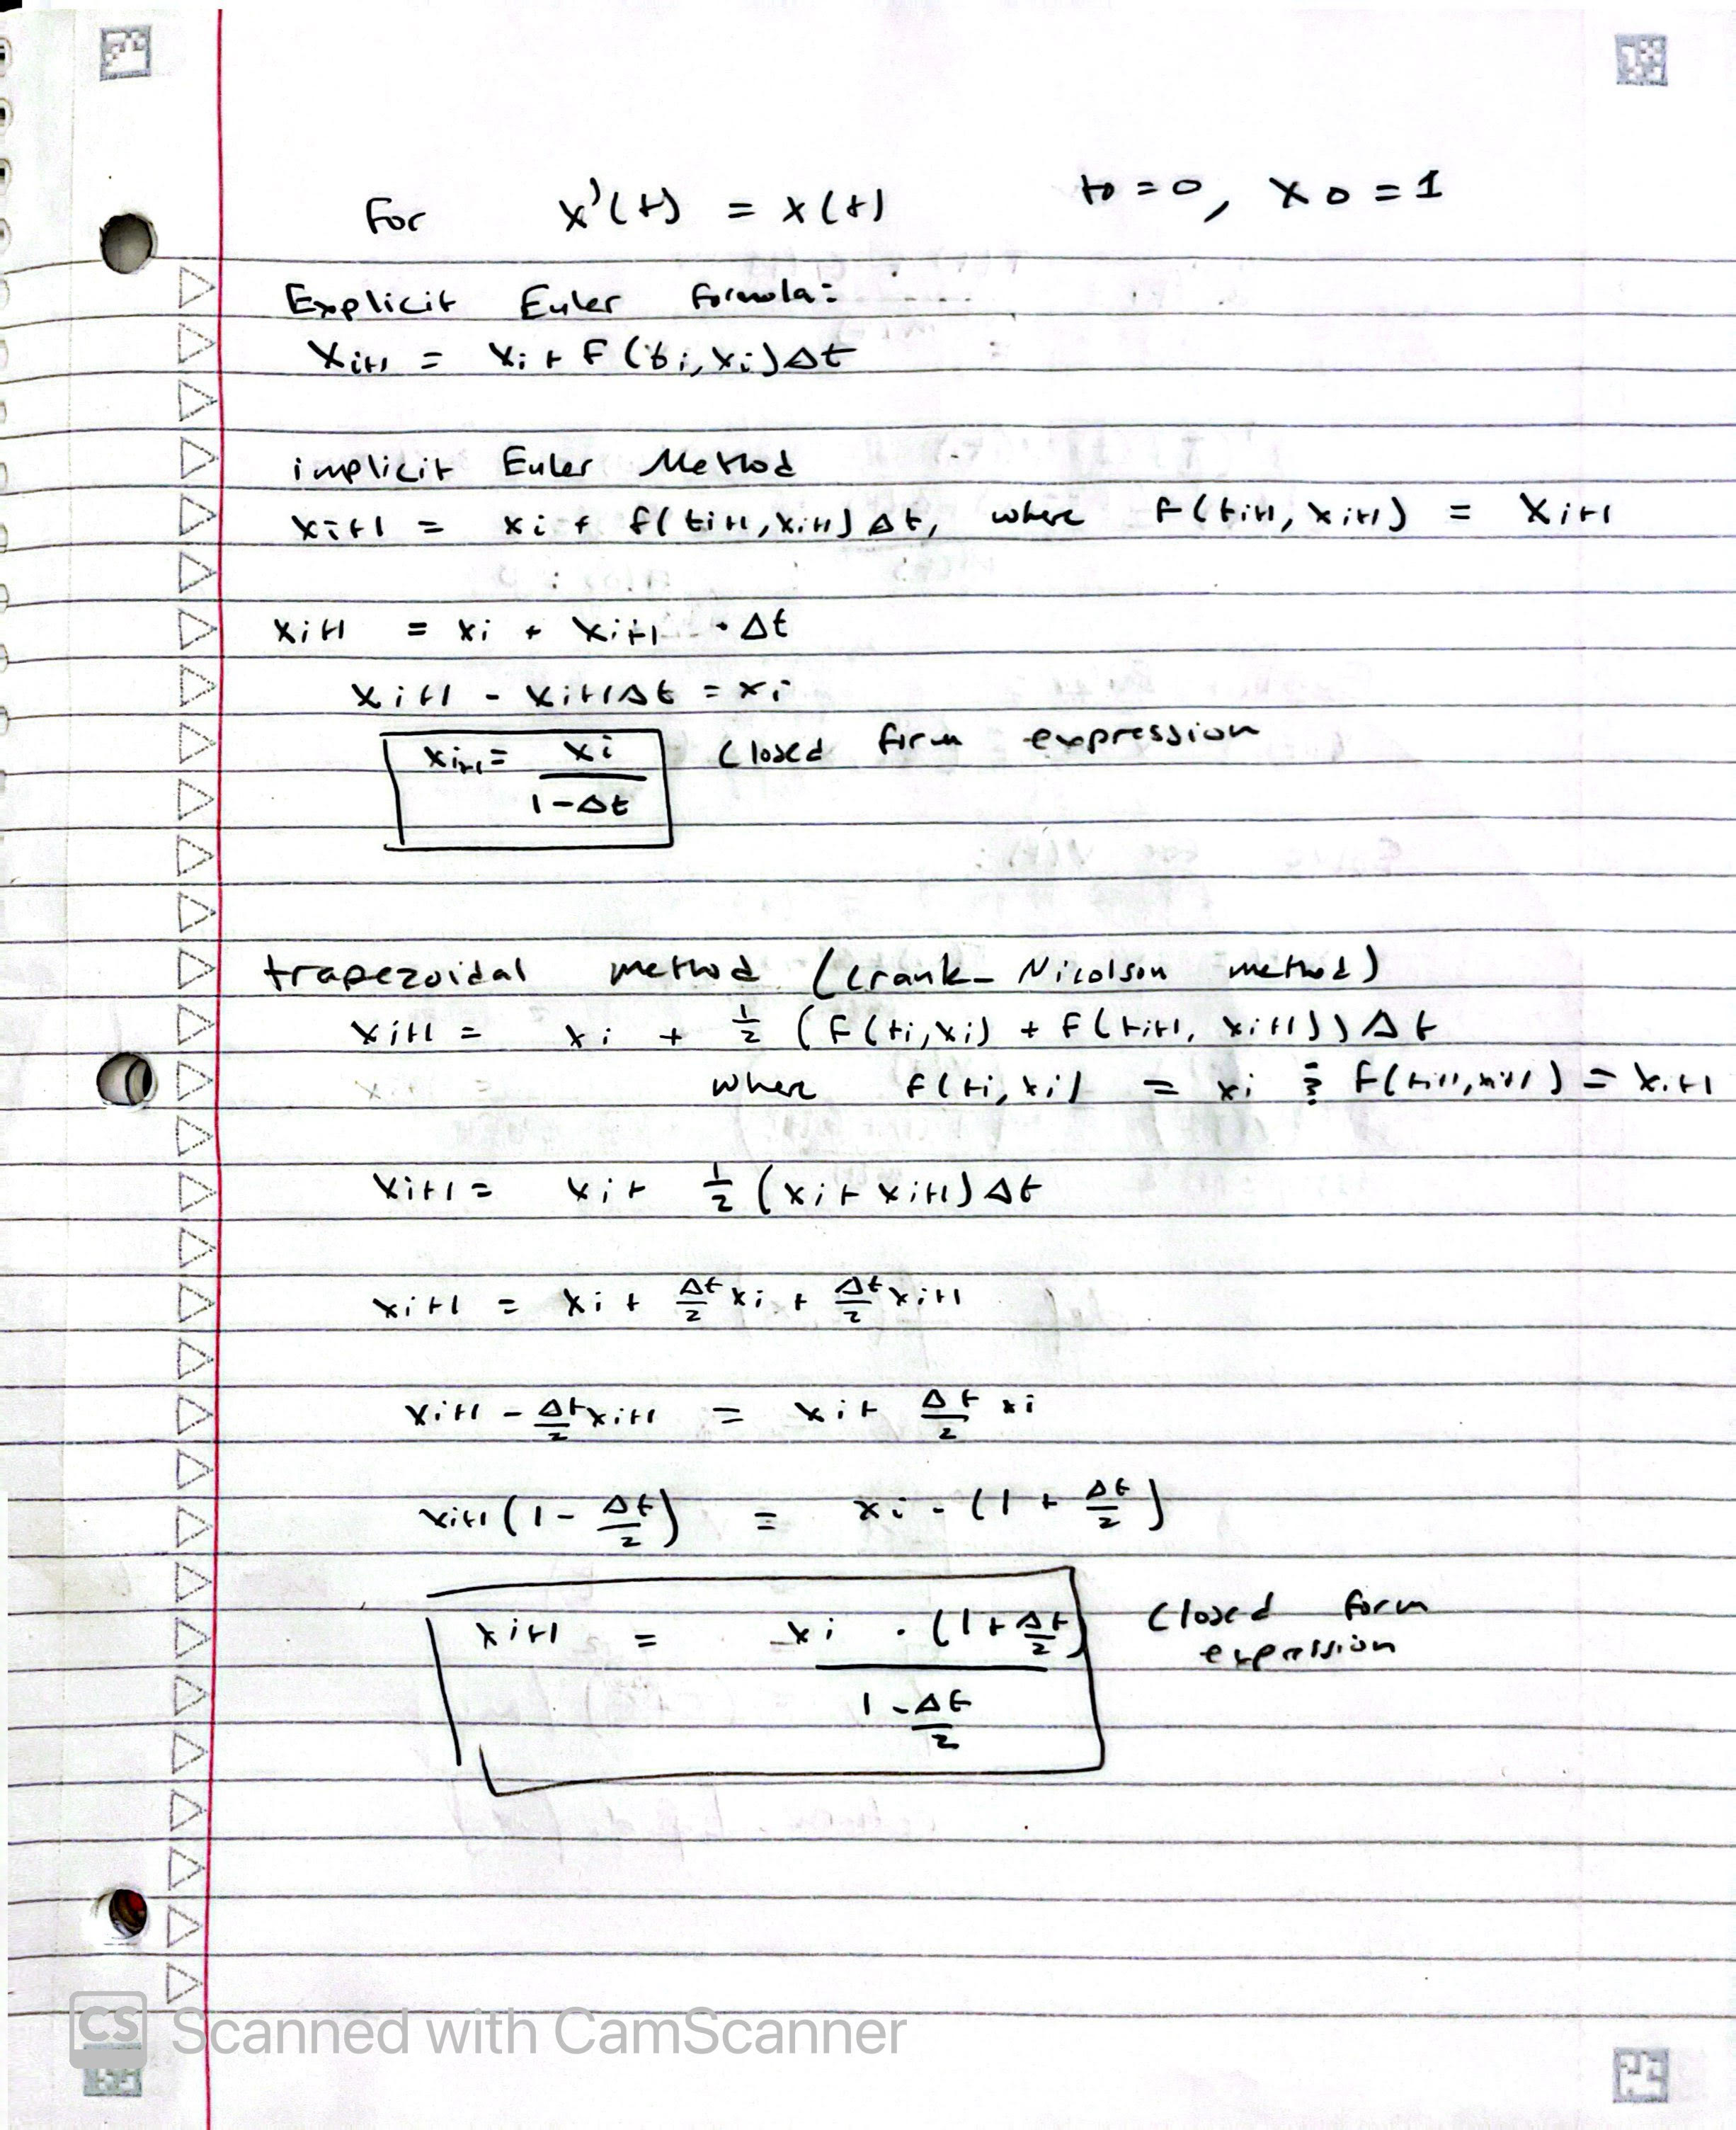 For x'(t) = x(t) t0 = 0, x0 = 1
Explicit Euler formula:
xi+1 = xi + f(ti, xi)Δt
implicit Euler Method
xi+1 = xi + f(ti+1, xi+1)Δt, where f(ti+1, xi+1) = xi+1
xi+1 = xi + xi+1 · Δt
xi+1 - xi+1Δt = xi
xi+1 = xi / 1-Δt closed form expression
trapezoidal method (Crank-Nicolson method)
xi+1 = xi + 1/2 (f(ti, xi) + f(ti+1, xi+1))Δt
where f(ti, xi) = xi & f(ti+1, xi+1) = xi+1
xi+1 = xi + 1/2 (xi + xi+1)Δt
xi+1 = xi + Δt/2 xi + Δt/2 xi+1
xi+1 - Δt/2 xi+1 = xi + Δt/2 xi
xi+1 (1 - Δt/2) = xi · (1 + Δt/2)
xi+1 = xi · (1 + Δt/2) / 1 - Δt/2 closed form
expression
CS Scanned with CamScanner